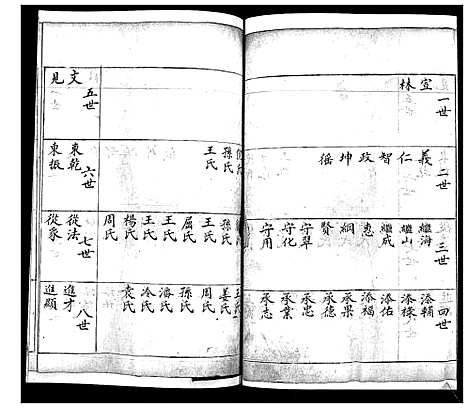 一世
宜林
二世
義
仁
智
政
坤
徭
三世
繼海
繼山
繼成
惠
綱
賢
守翠
守化
守用
四世
添輔
添祿
添佑
添福
承果
承德
承忠
承業
承志
五世
文見
六世
東乾
東振
孫氏
王氏
七世
從法
從象
孫氏
王氏
屈氏
王氏
王氏
楊氏
周氏
八世
進才
進顯
王氏
姜氏
周氏
孫氏
潘氏
冷氏
袁氏